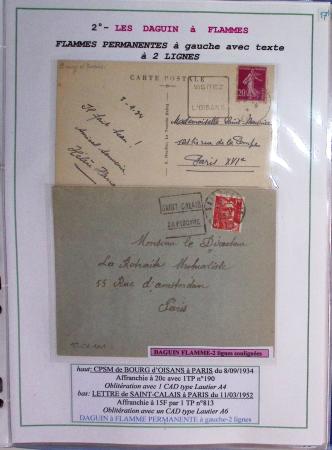 2°- LES DAGUIN à FLAMMES
FLAMMES PERMANENTES à gauche avec texte
à 2 LIGNES
CARTE POSTALE
VISITEZ
L'OISANS
20
Il fait beau !
Mademoiselle
Paris XVIe
SAINT CALAIS
Monsieur le Directeur
La Retraite Mutualiste
55 Rue d'amsterdam
Paris
DAGUIN FLAMME-2 lignes soulignées
haut: CPSM de BOURG d'OISANS à PARIS du 8/09/1934
Affranchie à 20c avec 1TP n°190
Oblitération avec 1 CAD type Lautier A4
bas: LETTRE de SAINT-CALAIS à PARIS du 11/03/1952
Affranchie à 15F par 1 TP n°813
Oblitération avec un CAD type Lautier A6
DAGUIN à FLAMME PERMANENTE à gauche-2 lignes